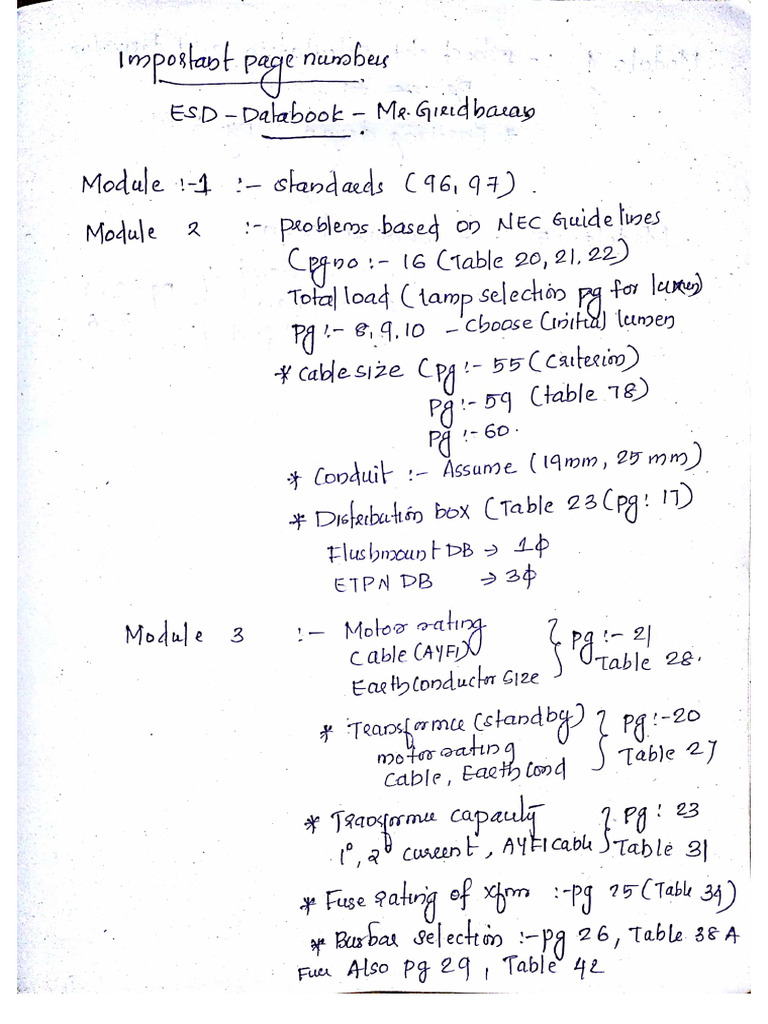 Important page numbers
ESD - Databook - Mr. Giridharan
Module :-1 :- standards (96, 97).
Module 2 :- problems based on NEC Guidelines
(pg no :- 16 (Table 20, 21, 22)
Total load (lamp selection pg for lumen)
pg :- 8, 9, 10 - choose (initial) lumen
* cable size (pg :- 55 (criterion)
pg :- 59 (table 78)
pg :- 60.
* Conduit :- Assume (19mm, 25 mm)
* Distribution box (Table 23 (pg: 17)
Flushmount DB → 1ϕ
ETPN DB → 3ϕ
Module 3 :- Motor rating
cable (AYFY)
Earth conductor size
} pg :- 21
Table 28.
* Transformer (standby)
motor rating
cable, Earth cond
} pg :- 20
Table 27
* Transformer capacity
1°, 2° current, AYFY cable
} pg : 23
Table 31
* Fuse rating of xfmr :- pg 25 (Table 34)
* Busbar selection :- pg 26, Table 38 A
Also pg 29, Table 42